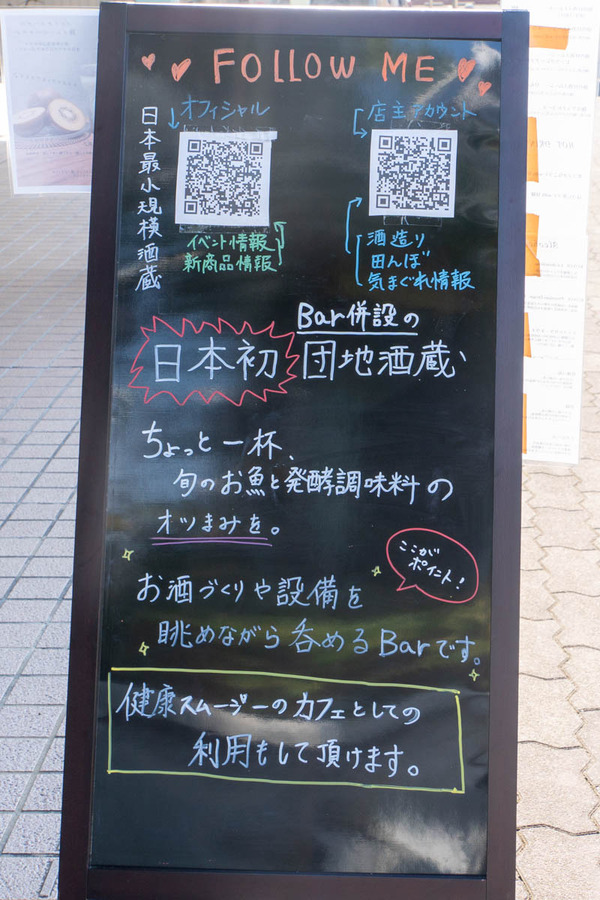 FOLLOW ME
日本最小規模酒蔵
オフィシャル
イベント情報
新商品情報
店主アカウント
酒造り
田んぼ
気まぐれ情報
Bar併設の
日本初 団地酒蔵
ちょっと一杯、
旬のお魚と発酵調味料の
オツまみを。
ここが
ポイント!
お酒づくりや設備を
眺めながら呑めるBarです。
健康スムージーのカフェとしての
利用もして頂けます。